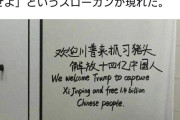 せよ」というスローガンが現れた。
欢迎川普来抓习猪头
解放十四亿中国人
We welcome Trump to capture
Xi Jinping and free 1.4 billion
Chinese people.